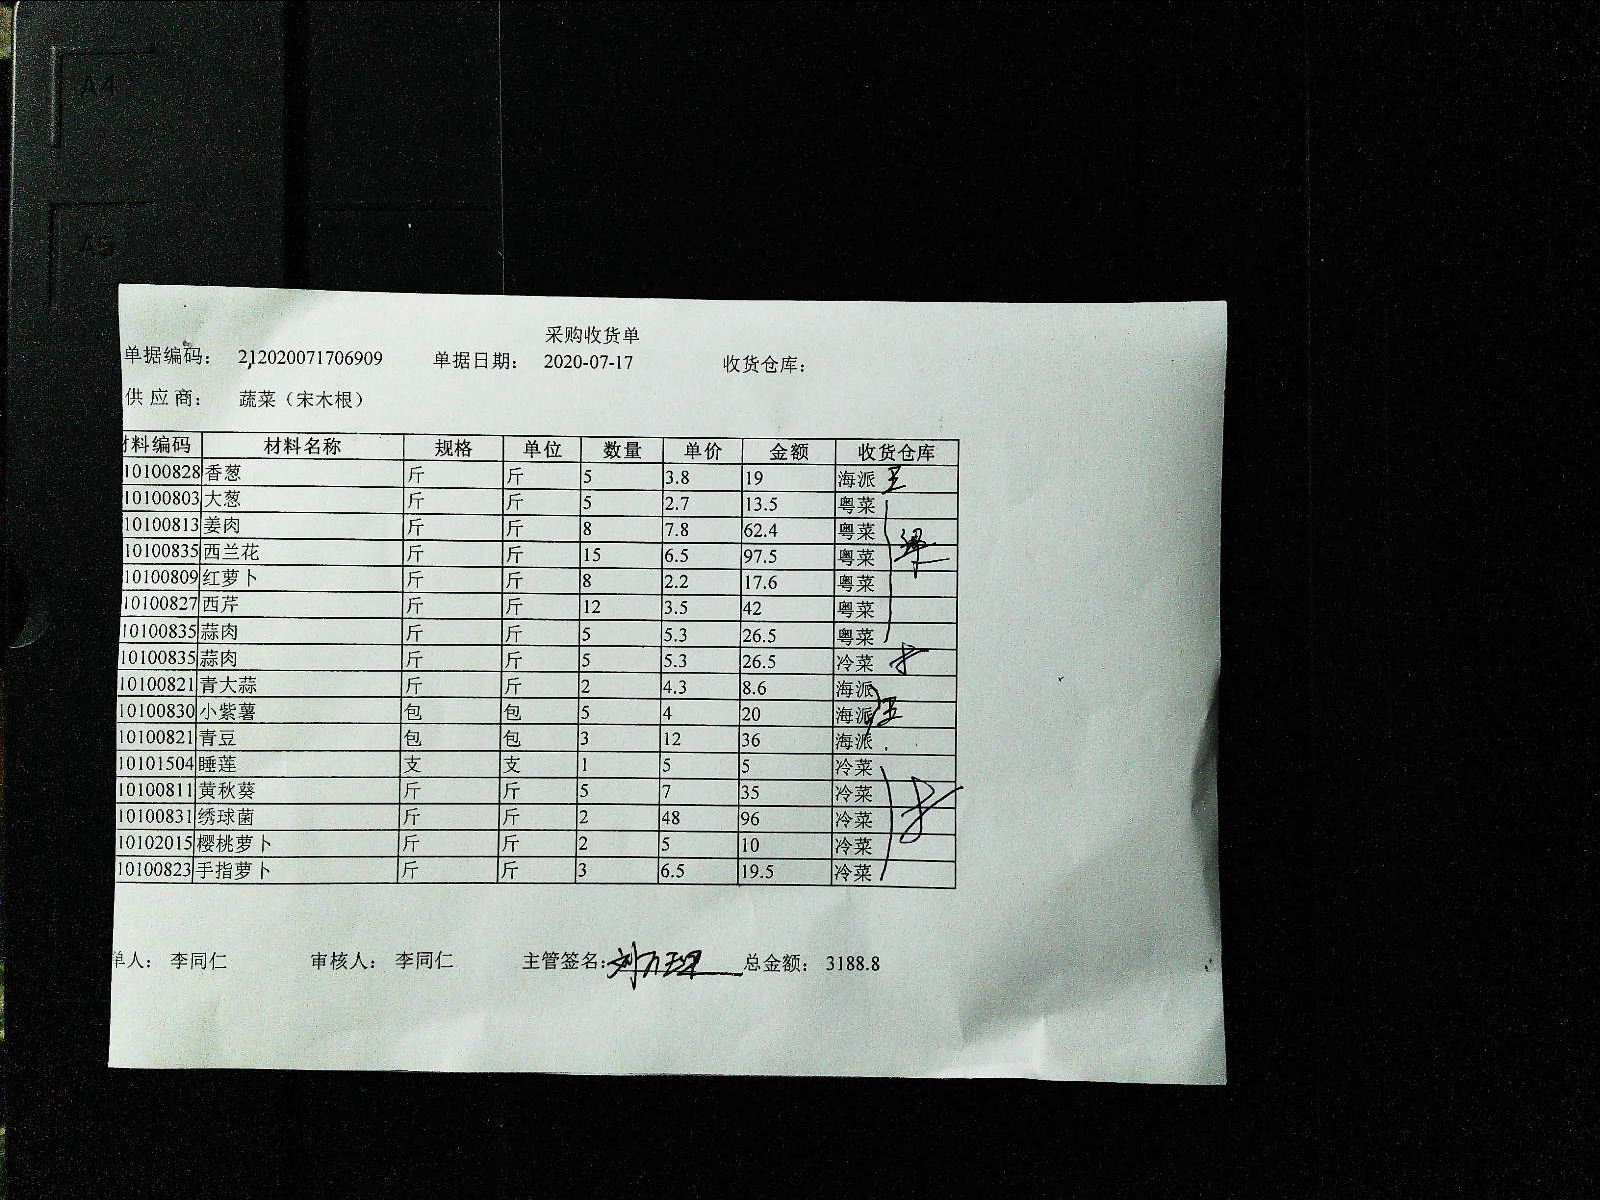 A4
A5
采购收货单
单据编码： 212020071706909 单据日期： 2020-07-17 收货仓库：
供应商： 蔬菜（宋木根）
材料编码 材料名称 规格 单位 数量 单价 金额 收货仓库
10100828 香葱 斤 斤 5 3.8 19 海派 王
10100803 大葱 斤 斤 5 2.7 13.5 粤菜
10100813 姜肉 斤 斤 8 7.8 62.4 粤菜
10100835 西兰花 斤 斤 15 6.5 97.5 粤菜
10100809 红萝卜 斤 斤 8 2.2 17.6 粤菜
10100827 西芹 斤 斤 12 3.5 42 粤菜
10100835 蒜肉 斤 斤 5 5.3 26.5 粤菜
10100835 蒜肉 斤 斤 5 5.3 26.5 冷菜
10100821 青大蒜 斤 斤 2 4.3 8.6 海派
10100830 小紫薯 包 包 5 4 20 海派 王
10100821 青豆 包 包 3 12 36 海派
10101504 睡莲 支 支 1 5 5 冷菜
10100811 黄秋葵 斤 斤 5 7 35 冷菜
10100831 绣球菌 斤 斤 2 48 96 冷菜
10102015 樱桃萝卜 斤 斤 2 5 10 冷菜
10100823 手指萝卜 斤 斤 3 6.5 19.5 冷菜
单人： 李同仁 审核人： 李同仁 主管签名： 总金额： 3188.8